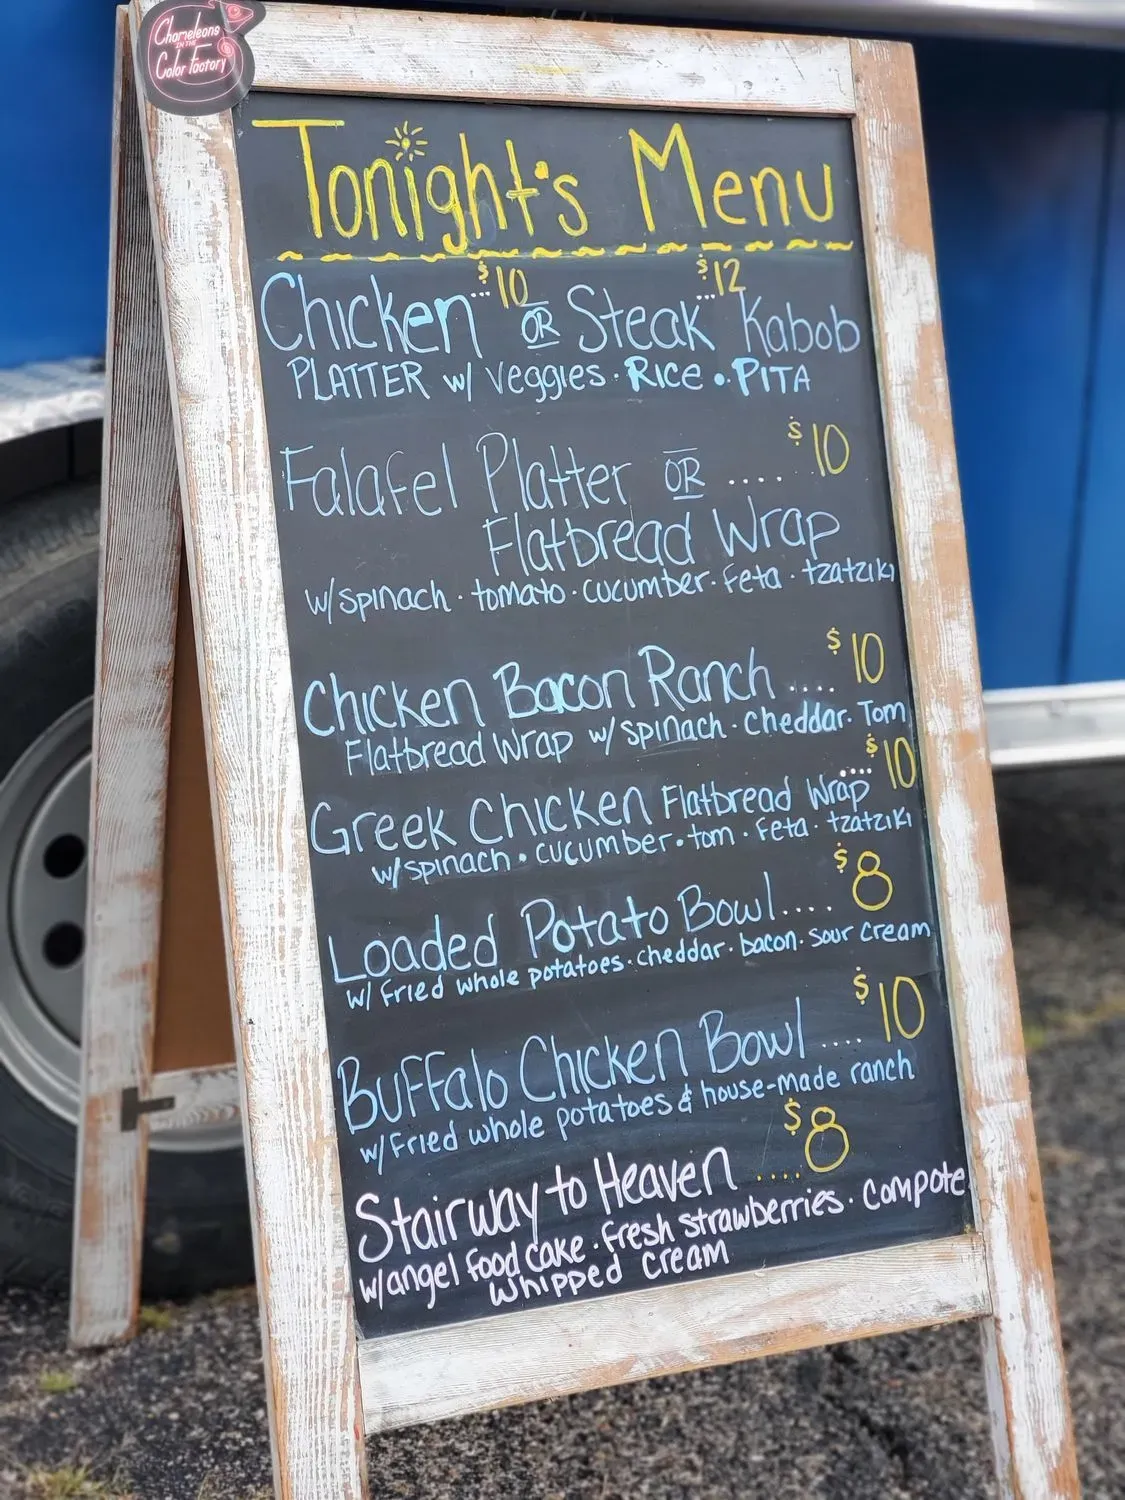 Chameleons
IN THE
Color Factory
Tonight's Menu
Chicken ...$10 OR Steak ...$12 Kabob
PLATTER w/ Veggies · Rice · PITA
Falafel Platter OR .... $10
Flatbread Wrap
w/ spinach · tomato · cucumber · feta · tzatziki
Chicken Bacon Ranch .... $10
Flatbread Wrap w/ spinach · cheddar · Tom
Greek Chicken Flatbread Wrap .... $10
w/ spinach · cucumber · tom · feta · tzatziki
Loaded Potato Bowl.... $8
w/ fried whole potatoes · cheddar · bacon · sour cream
Buffalo Chicken Bowl .... $10
w/ fried whole potatoes & house-made ranch
Stairway to Heaven .... $8
w/ angel food cake · fresh strawberries · compote
whipped cream